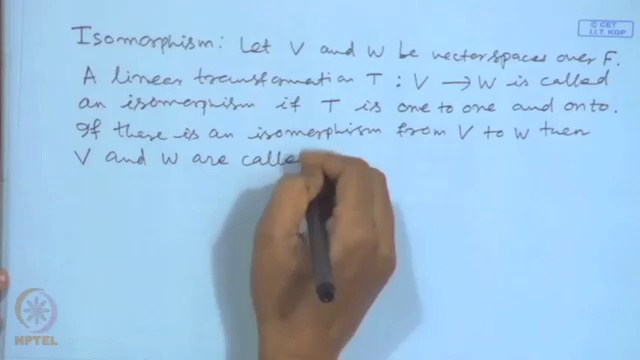 © CET
I.I.T. KGP
Isomorphism: Let V and W be vector spaces over F.
A linear transformation T : V → W is called
an isomorphism if T is one to one and onto.
If there is an isomorphism from V to W then
V and W are calle
NPTEL